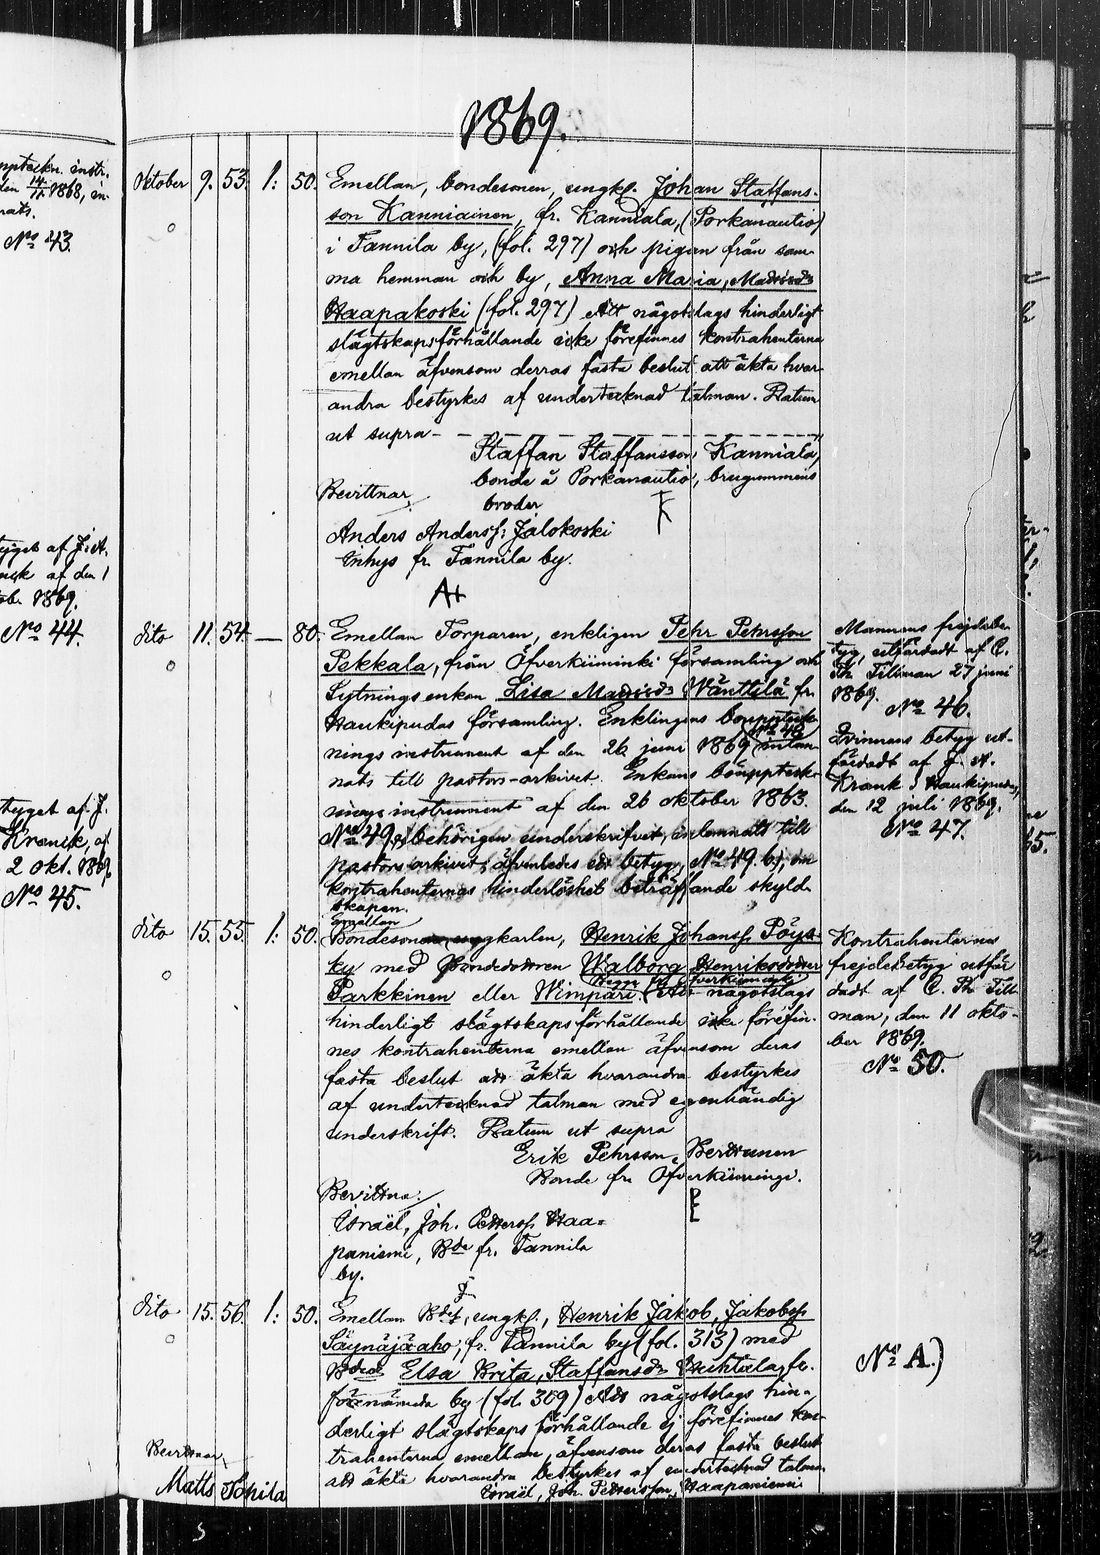 1869.
pptekn. instr.
den 14/11 1868, in-
rats.
No 43.
Oktober 9. 53. 1: 50. Emellan, bondesonen, ungk. Johan Staffans-
son Kanniainen, fr. Kanniala, (Porkanautio)
i Tannila by, (fol. 297) och pigan från sam-
ma hemman och by, Anna Maria, Madsds
Haapakoski (fol. 297) Att någotslags hinderligt
slägtskapsförhållande icke förefinnes kontrahenterna
emellan äfvensom derras fasta beslut att äkta hvar-
andra bestyrkes af undertecknad talman. Datum
ut supra
Staffan Staffansson, Kanniala,
bonde å Porkanautio, brugummens
broder
Bevittnar,
Anders Andersf: Jalokoski
Inhys fr. Tannila by.
tyget af J. A.
af den 1
1869.
No 44.
dito 11. 54. — 80. Emellan Torparen, enklingen Pehr Pehrsson
Pekkala, från Öfverkiiminki församling och
Sytnings enkan Lisa Madsds Wänttilä fr.
Haukipudas församling. Enklingens bouppteck-
No 48
nings instrument af den 26 juni 1869 inläm-
nats till pastors-arkivet. Enkans bouppteck-
nings instrument af den 26 oktober 1863.
No 49, behörigen underskrifvet, inlemnadt till
pastors arkivet, äfvenledes ett betyg, No 49 b), om
kontrahenternas hinderlöshet beträffande skyld-
skapen.
Mannens frejdebe-
tyg, utfärdadt af C.
Th. Tillman 27 juni
1869.
No 46.
Qvinnans betyg ut-
färdadt af J. A.
Krank i Haukipudas,
den 12 juli 1869.
No 47.
tyget af J.
Krank, af
2 okt. 1869
No 45.
Emellan
dito 15. 55. 1: 50. Bondeson ungkarlen, Henrik Johansf. Pöys-
ky med Bondedottren Walborg Henriksdotter
Parkkinen eller Wimpari. Att någotslags
hinderligt slägtskapsförhållande icke förefin-
nes kontrahenterna emellan äfvensom deras
fasta beslut att äkta hvarandra bestyrkes
af undertecknad talman med egenhändig
underskrift. Datum ut supra
Erik Pehrsson, Berttunen
Bonde fr. Öfverkiiminge.
Bevittna:
Israël, Joh. Pettersf. Haa-
paniemi, Bde fr. Tannila
by.
Kontrahenternas
frejdebetyg utfär-
dadt af C. Th. Till-
man, den 11 okto-
ber 1869.
No 50.
dito 15. 56. 1: 50. Emellan Bdes, ungk., Henrik Jakob, Jakobsf.
Säynäjäaho, fr. Tannila by (fol. 313) med
Elsa Brita, Staffansds Huhtala, fr.
förenämda by (fol. 309) Att någotslags hin-
derligt slägtskaps förhållande ej förefinnes kon-
trahenterna emellan, äfvensom deras fasta beslut
att äkta hvarandra bestyrkes af undertecknad talman
Israël, Joh. Pettersson, Haapaniemi
No A.)
Bevittnar,
Matts Tohila